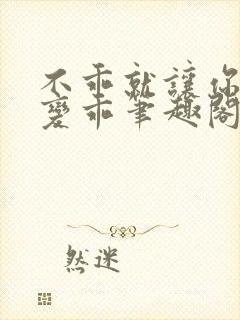 不乖就讓你
變乖筆趣閣
然迷